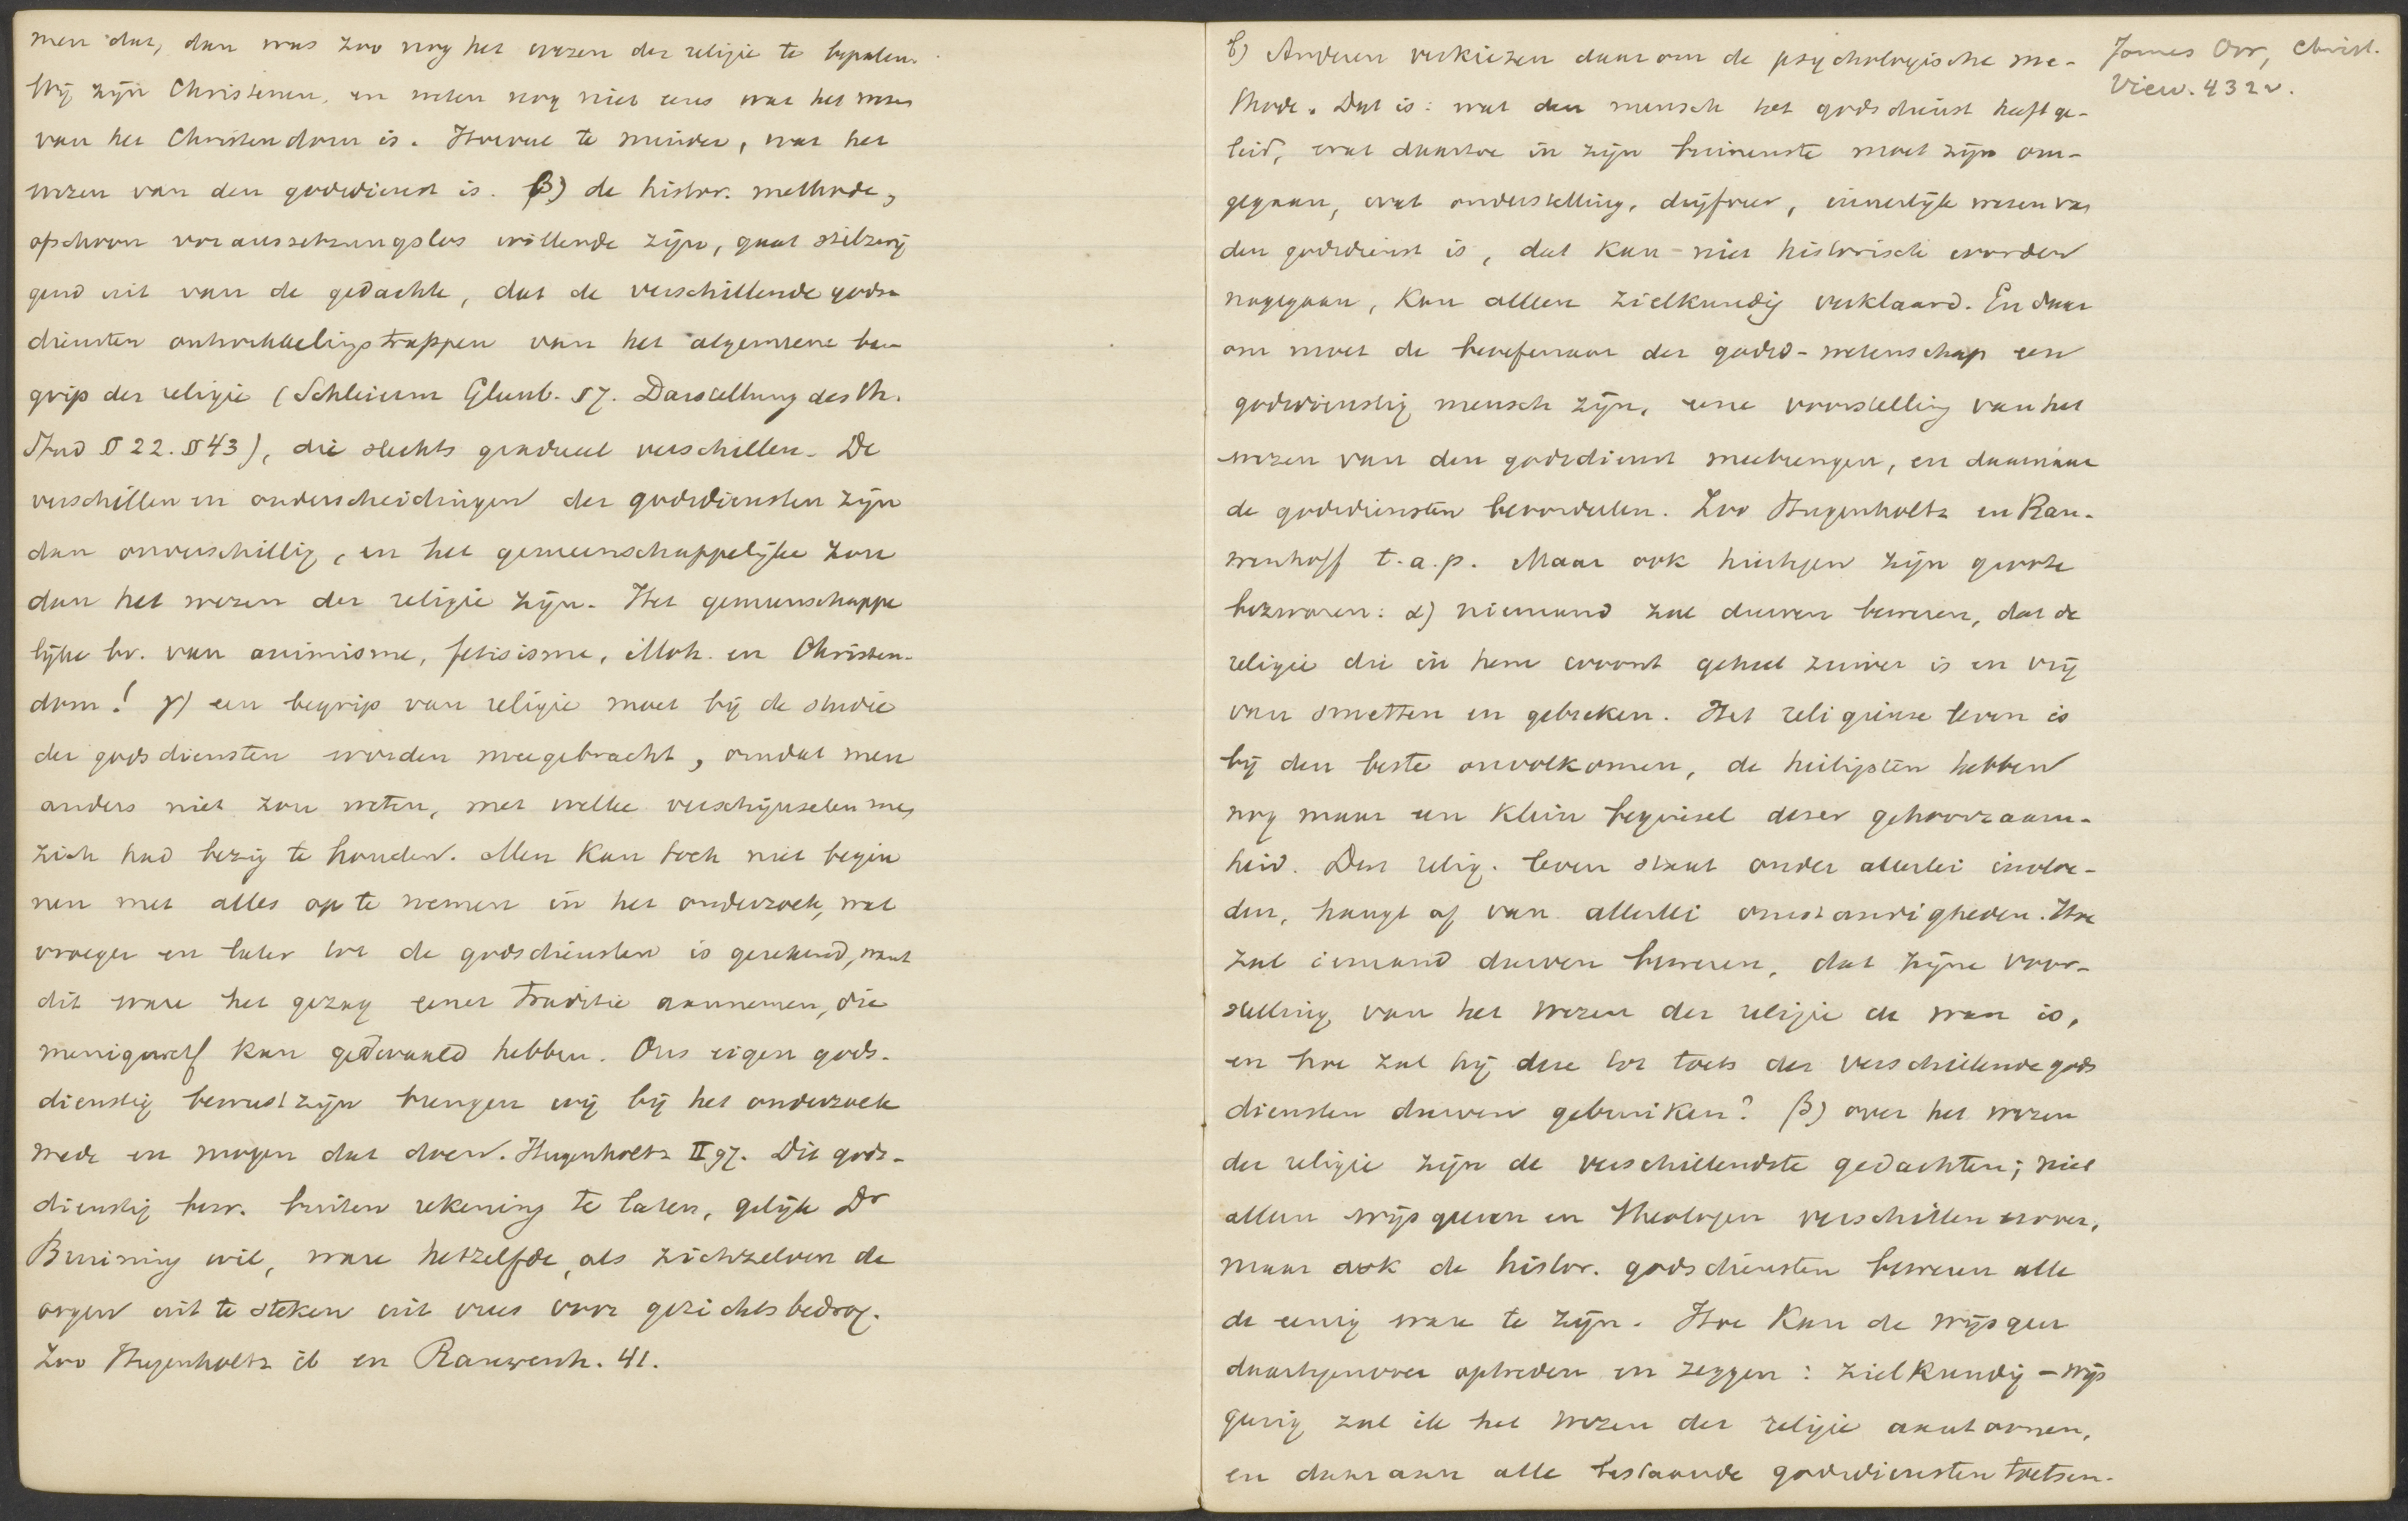 men dat, dan was zoo nog het wezen der religie te bepalen.
Wij zijn Christenen, en weten nog niet eens wat het wezen
van het Christendom is. Hoeveel te minder, wat het
wezen van den godsdienst is. β) de histor. methode,
ofschoon voraussetzungslos willende zijn, gaat stilzwij
gend uit van de gedachte, dat de verschillende gods-
diensten ontwikkelingstrappen van het algemeene be-
grip der religie (Schleierm Glaub. § 7. Darstellung des th.
Stud § 22. § 43), die slechts gradueel verschillen. De
verschillen en onderscheidingen der godsdiensten zijn
dan onverschillig, en het gemeenschappelijke zou
dan het wezen der religie zijn. Het gemeenschappe
lijke bv. van animisme, fetisisme, Moh. en Christen-
dom! γ) een begrip van religie moet bij de studie
der godsdiensten worden meegebracht, omdat men
anders niet zou weten, met welke verschijnselen men
zich had bezig te houden. Men kan toch niet begin
nen met alles op te nemen in het onderzoek, wat
vroeger en later tot de godsdiensten is gerekend, want
dit ware het gezag eener traditie aannemen, die
menigwerf kan gedwaald hebben. Ons eigen gods-
dienstig bewustzijn brengen wij bij het onderzoek
mede en mogen dat doen. Hugenholtz II 97. Dit gods-
dienstig bew. buiten rekening te laten, gelijk Dr
Bruining wil, ware hetzelfde, als zichzelven de
oogen uit te steken uit vrees voor gezichtsbedrog.
Zoo Hugenholtz ib en Rauwenh. 41.
b) Anderen verkiezen daarom de psychologische me-
thode. Dat is: wat den mensch tot godsdienst heeft ge-
leid, wat daartoe in zijn binnenste moet zijn om-
gegaan, wat onderstelling, drijfveer, innerlijk wezen van
den godsdienst is, dat kan niet historisch worden
nagegaan, kan alleen zielkundig verklaard. En daar
om moet de beoefenaar der godsd-wetenschap een
godsdienstig mensch zijn, eene voorstelling van het
wezen van den godsdienst meebrengen, en daarnaar
de godsdiensten beoordeelen. Zoo Hugenholtz en Rau-
wenhoff t.a.p. Maar ook hiertegen zijn groote
bezwaren: α) niemand zal durven beweren, dat de
religie die in hem woont geheel zuiver is en vrij
van smetten en gebreken. Het religieuse leven is
bij den beste onvolkomen, de heiligsten hebben
nog maar een klein beginsel dezer gehoorzaam-
heid. Dat relig. leven staat onder allerlei invloe-
den, hangt af van allerlei omstandigheden. Hoe
zal iemand durven beweren, dat zijne voor-
stelling van het wezen der religie de ware is,
en hoe zal hij deze tot toets der verschillende gods
diensten durven gebruiken? β) over het wezen
der religie zijn de verschillendste gedachten; niet
alleen wijsgeeren en theologen verschillen erover,
maar ook de histor. godsdiensten beweren alle
de eenig ware te zijn. Hoe kan de wijsgeer
daartegenover optreden en zeggen: zielkundig-wijs
geerig zal ik het wezen der religie aantoonen,
en daaraan alle bestaande godsdiensten toetsen.
James Orr, Christ.
View. 432v.